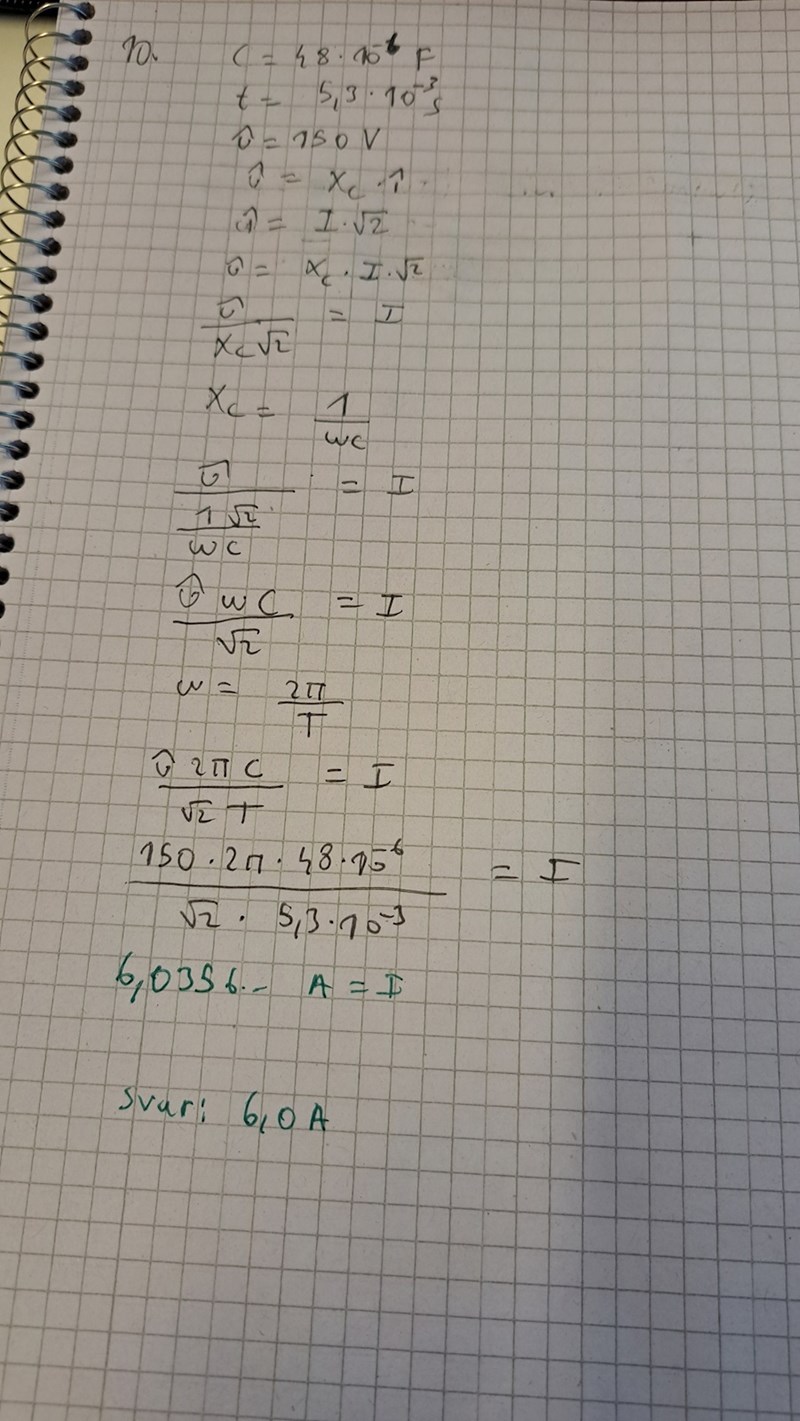 10. C = 48 · 10⁻⁶ F
t = 5,3 · 10⁻³ s
Û = 150 V
Û = Xc · Î
Î = I · √2
Û = Xc · I · √2
Û / Xc √2 = I
Xc = 1 / ωC
Û / (1 √2 / ωC) = I
Û ωC / √2 = I
ω = 2π / T
Û 2π C / √2 T = I
150 · 2π · 48 · 10⁻⁶ / √2 · 5,3 · 10⁻³ = I
6,0356.. A = I
Svar: 6,0 A